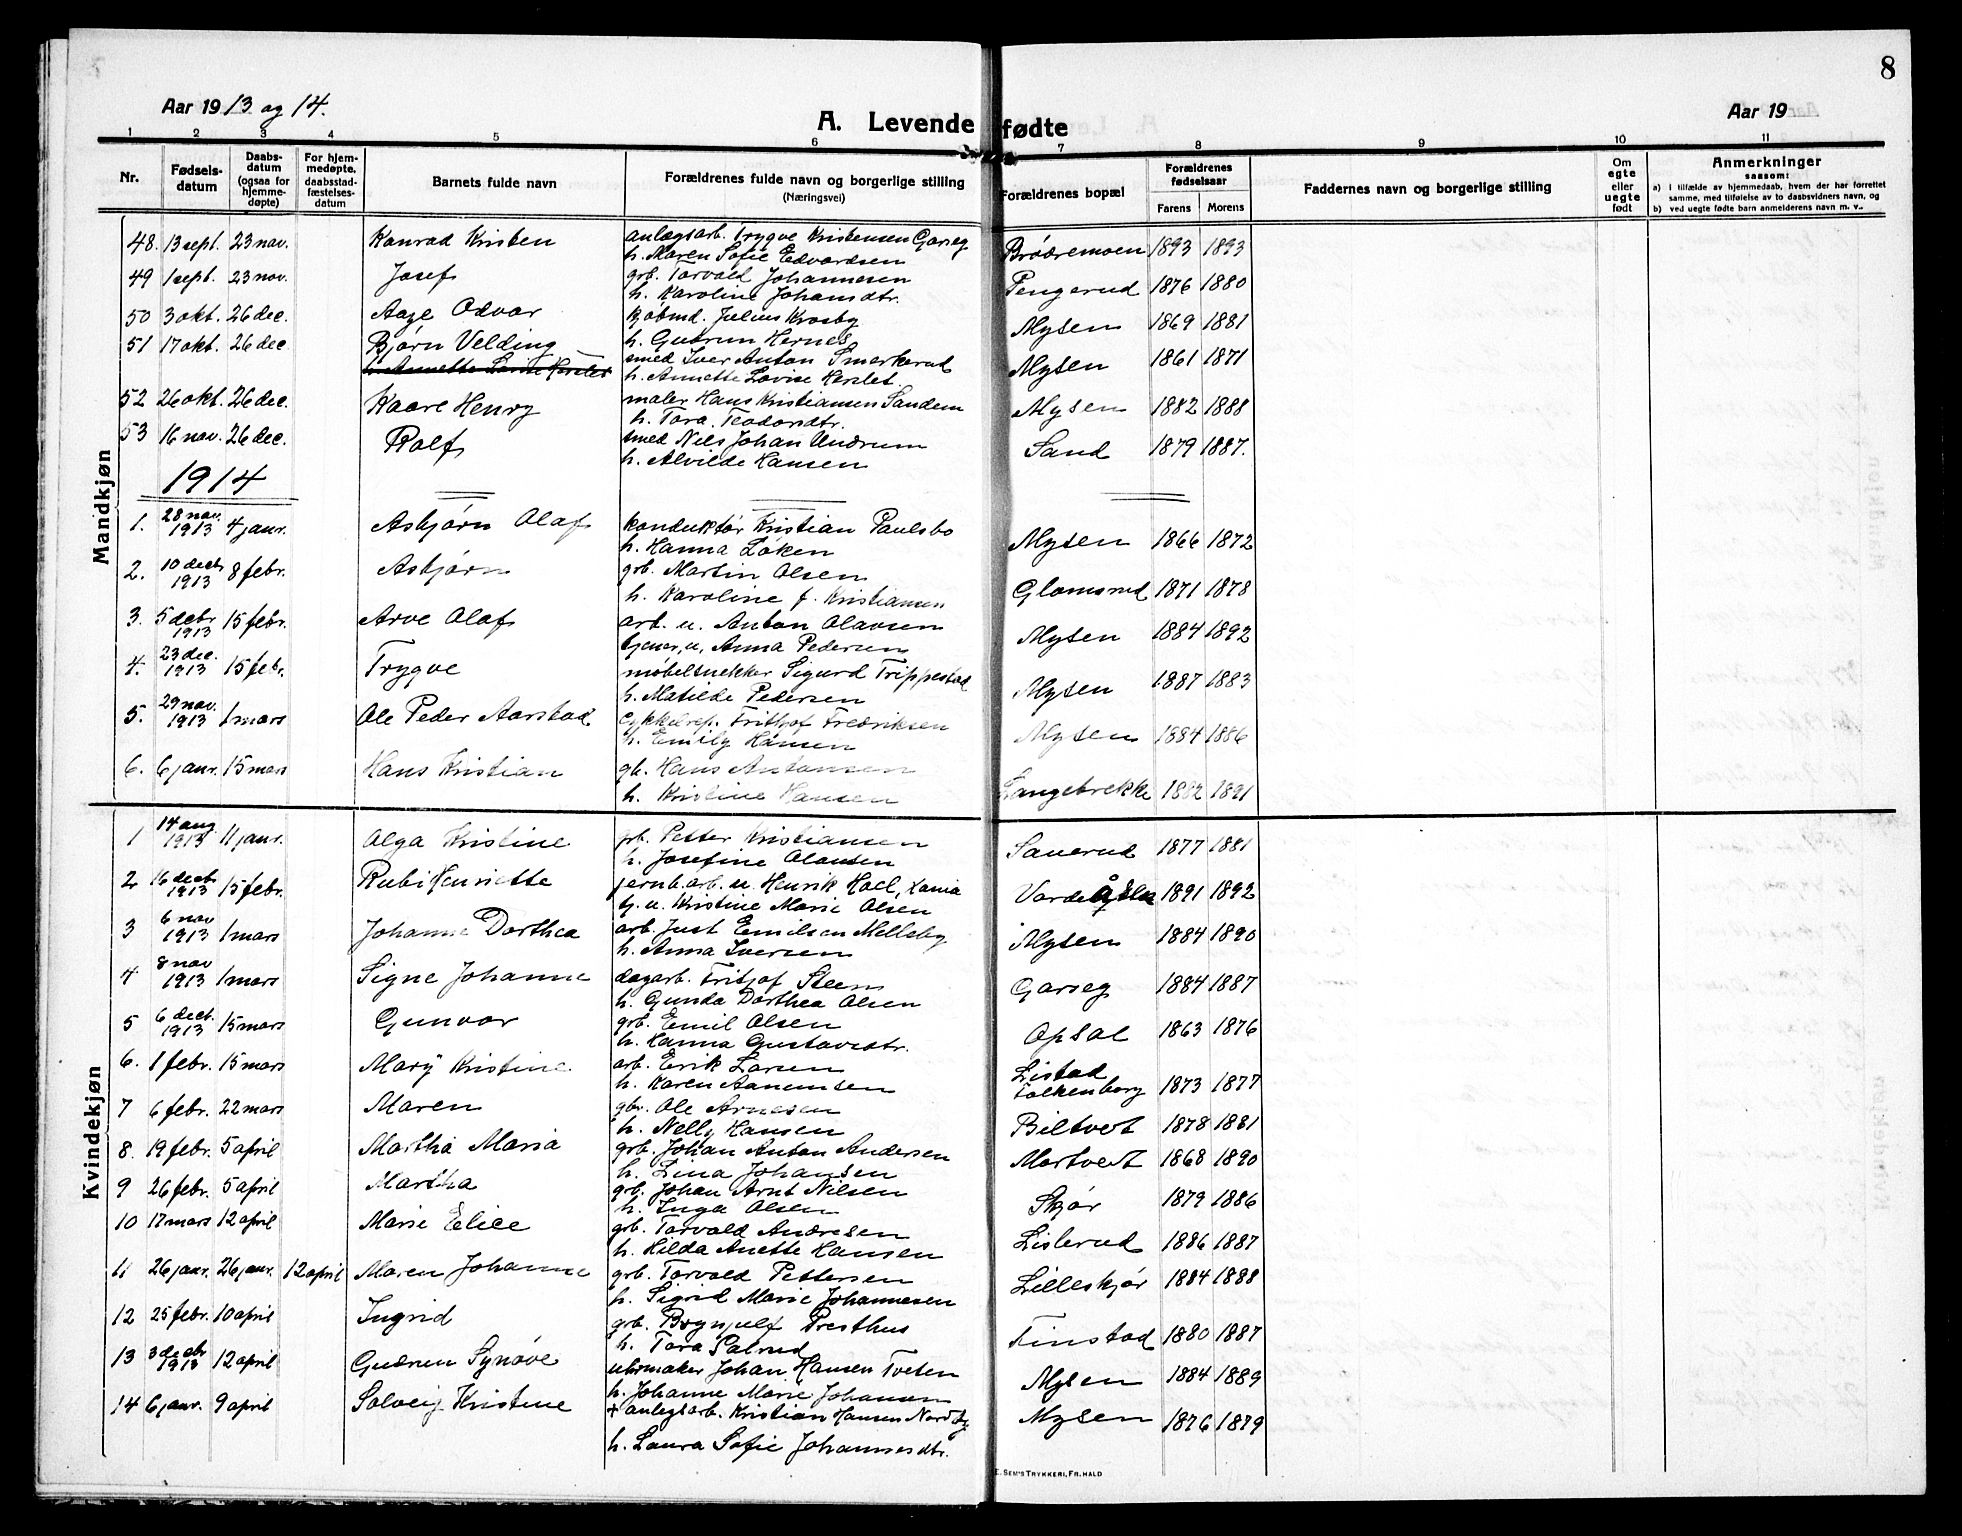 8
Aar 1913 og 14.
A. Levende fødte
Aar 19
1 2 3 4 5 6 7 8 9 10 11
Nr. Fødselsdatum Daabsdatum (ogsaa for hjemmedøpte) For hjemmedøpte, daabsstadfæstelsesdatum Barnets fulde navn Forældrenes fulde navn og borgerlige stilling (Næringsvei) Forældrenes bopæl Forældrenes fødselsaar Farens Morens Faddernes navn og borgerlige stilling Om egte eller uegte født Anmerkninger saasom:
a) i tilfælde av hjemmedaab, hvem der har forrettet samme, med tilføielse av to daabsvidners navn, og
b) ved uegte fødte barn anmelderens navn m. v..
Mandkjøn
48. 13 sept. 23 nov. Konrad Kristen anlægsarb. Trygve Kristensen Garseg Brødremoen 1893 1893
h. Maren Sofie Edvardsen
49 1 sept. 23 nov. Josef grb. Torvald Johannesen Pengerud 1876 1880
h. Karoline Johansdtr.
50 3 okt. 26 dec. Aage Odvar kjøbmd. Julius Krosby Mysen 1869 1881
h. Gudrun Hernes
51 17 okt. 26 dec Bjørn Velding smed Iver Anton Smerkerud Mysen 1861 1871
h. Annette Lovise Herslet
52 26 okt. 26 dec. Kaare Henry maler Hans Kristiansen Sandem Mysen 1882 1888
h. Tora Teodordtr.
53 16 nov. 26 dec. Rolf smed Nils Johan Undrum Sand 1879 1887.
h. Alvilde Hansen
1914
1. 28 nov. 1913 4 janr. Asbjørn Olaf konduktør Kristian Paulsbo Mysen 1866 1872
h. Hanna Løken
2. 10 decb 1913 8 febr. Asbjørn grb. Martin Olsen Glomsrud 1871 1878
h. Karoline f. Kristiansen
3. 5 decbr 1913 15 febr. Arve Olaf arb. u. Anton Olavsen Mysen 1884 1892
tjener, u, Anna Pedersen
4. 23 dec. 1913 15 febr. Trygve møbelsnekker Sigurd Trippestad Mysen 1887 1883
h. Matilde Pedersen
5. 29 nov. 1913 1 mars Ole Peder Aarstad cykkelrep. Frithjof Fredriksen Mysen 1884 1886
h. Emily Hansen
6. 6 janr. 15 mars Hans Kristian gb. Hans Antonsen Langebrekke 1882 1891
h. Kristine Hansen
Kvindekjøn
1 14 aug 1913 11 janr. Olga Kristine grb. Petter Kristiansen Sauerud 1877 1881
h. Josefine Olausen
2 16 decb 1913 15 febr. Rubi Henriette jernb.arb. u. Henrik Hoel, Vardeåsen 1891 1892
tj. u. Kristine Marie Olsen
3 6 nov 1913 1 mars Johanne Dorthea arb. Just Emilsen Melleby Mysen 1884 1890
h. Anna Iversen
4 8 nov 1913 1 mars Signe Johanne dagarb. Fritjof Steen Garseg 1884 1887
h. Gunda Dorthea Olsen
5 6 decb. 1913 15 mars Gunvor grb. Emil Olsen Opsal 1863 1876
h. Hanna Gustavsdtr.
6. 1 febr. 15 mars Mary Kristine arb. Erik Larsen Listad Falkenborg 1873 1877
h. Karen Aanensen
7 6 febr. 22 mars Maren gbr. Ole Arnesen Biltvet 1878 1881
h. Nelly Hansen
8. 19 febr. 5 april Martha Maria grb. Johan Anton Andersen Mortvedt 1868 1890
h. Lina Johansen
9 26 febr. 5 april Martha grb. Johan Arnt Nilsen Skjør 1879 1886
h. Inga Olsen
10 17 mars 12 april Marie Elise grb. Torvald Andresen Lislerud 1886 1887
h. Hilda Anette Hansen
11 26 janr. 26 janr. 12 april Maren Johanne grb. Torvald Pettersen Lilleskjør 1884 1888
h. Sigrid Marie Johannesen
12 25 febr. 10 april Ingrid grb. Brynjulf Presthus Finstad 1880 1887
h. Tora Salrud
13 3 decb 1913 12 april Gudrun Synøve uhrmaker Johan Hansen Tveten Mysen 1884 1889
h. Johanne Marie Johansen
14 6 janr. 9 april Solveig Kristine + anlegsarb. Kristian Hansen Nordby Mysen 1876 1879
h. Laura Sofie Johannesdtr.
E. SEM'S TRYKKERI, FR.HALD